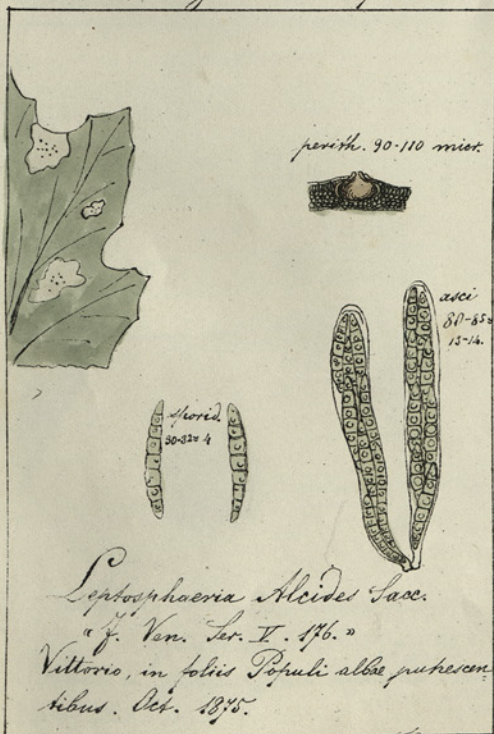 perith. 90-110 micr.
asci
80-85=
13-14.
sporid.
30-32= 4
Leptosphaeria Alcides Sacc.
"F. Ven. Ser. V. 176."
Vittorio, in foliis Populi albae putrescen
tibus. Oct. 1875.